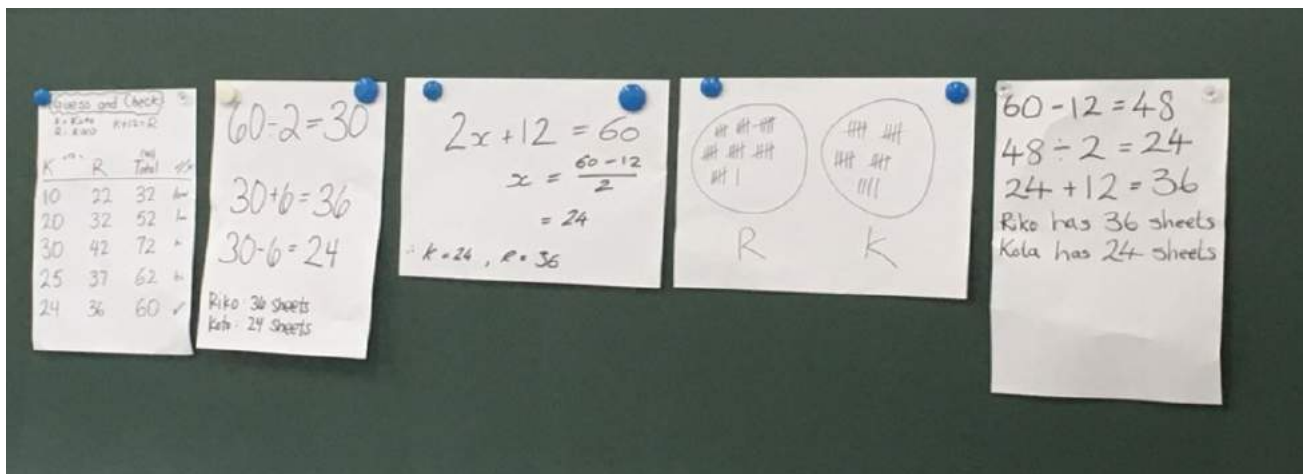 Guess and Check
K = Koto K+12=R
R = Riko
K R Total
10 22 32
20 32 52
30 42 72
25 37 62
24 36 60 ✓
60÷2=30
30+6=36
30-6=24
Riko: 36 sheets
Koto: 24 sheets
2x+12 = 60
x = 60-12
2
= 24
∴ K=24, R=36
R K
60-12=48
48÷2=24
24+12=36
Riko has 36 sheets
Kota has 24 sheets